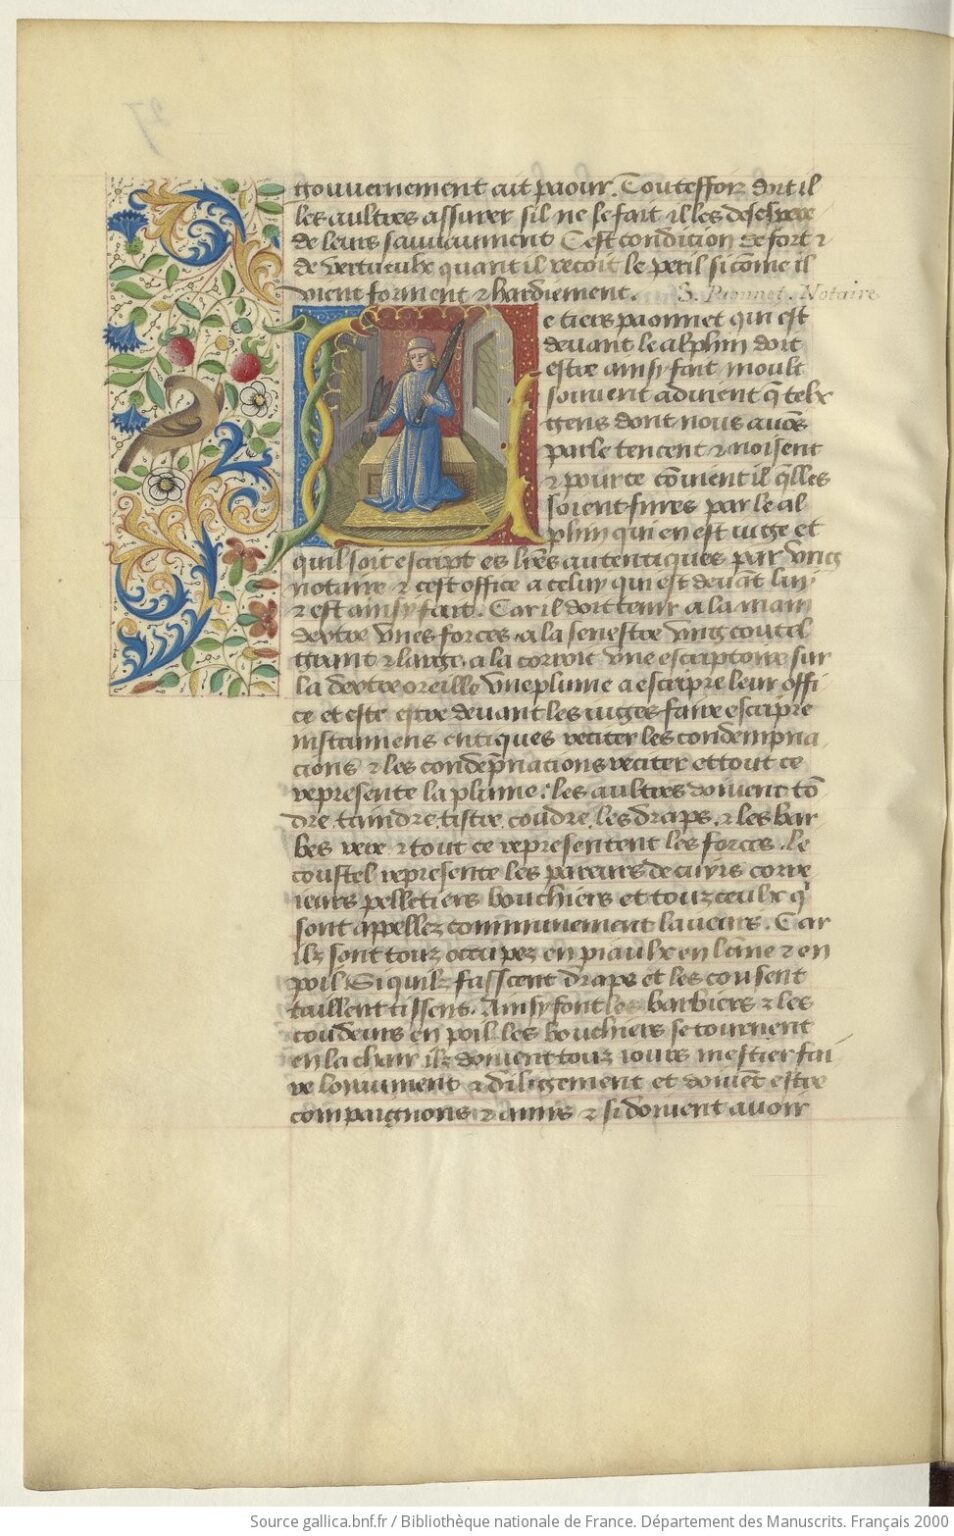 gouvernement ait paour. Touteffoiz doit il
les aultres assurer sil ne le fait il les desespere
de leurs sauvement Cest condicion de fort ⁊
de vertueulx quant il recoit le peril si cōme il
vient forment ⁊ hardiement. 3. Pionnet. Notaire
Le tiers paonnet qui est
devant le alphin doit
estre ainsy fait moult
souvent advient q̄ telx
gens dont nous avōs
parle tencent ⁊ noisent
⁊ pour ce cōvient il q̄lles
soient finees par le al
phin qui en est iuge et
quil soit escript es liv̄es autentiques par ung
notaire ⁊ cest office a celuy qui est devāt luy
⁊ est ainsy fait. Car il doit tenir a la main
dextre unes forces a la senestre ung coutel
grant ⁊ large, a la coroie une escriptoire sur
la dextre oreille une plume a escripre leur offi
ce et este estre devant les iuges faire escripre
instrumens entiques reciter les condempna
cions ⁊ les condep̄nacions reciter et tout ce
represente la plume: les aultres doivent tō
dre taindre tistre coudre les draps, ⁊ les bar
bes rere ⁊ tout ce representent les forces. le
coustel represente les pareurs de cuyrs corre
ieurs pelletiers bouchiers et touz ceulx q'
sont appellez communement laveurs. Car
ilz sont touz occupez en piaulx en laine ⁊ en
poil Si quilz fasscent draps et les cousent
taillent tissent. Ainsy font les barbiers ⁊ les
coudeurs en poil les bouchiers se tournent
en la chair ilz doivent touz iours mestier fai
re loyaument ⁊ diligemment et doivēt estre
compaignons ⁊ amis ⁊ si doivent avoir
Source gallica.bnf.fr / Bibliothèque nationale de France. Département des Manuscrits. Français 2000